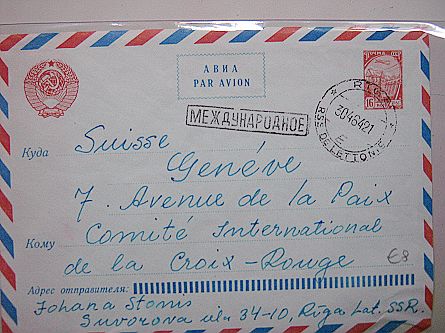 АВИА
PAR AVION
МЕЖДУНАРОДНОЕ
RIGA
30464 21
RSS DE LETTONIE
16
Куда
Suisse
Genéve
7. Avenue de la Paix
Comité International
Кому
de la Croix-Rouge
€8
Адрес отправителя:
Johana Stonis
Suvorova iela 34-10, Rīga Lat. SSR.